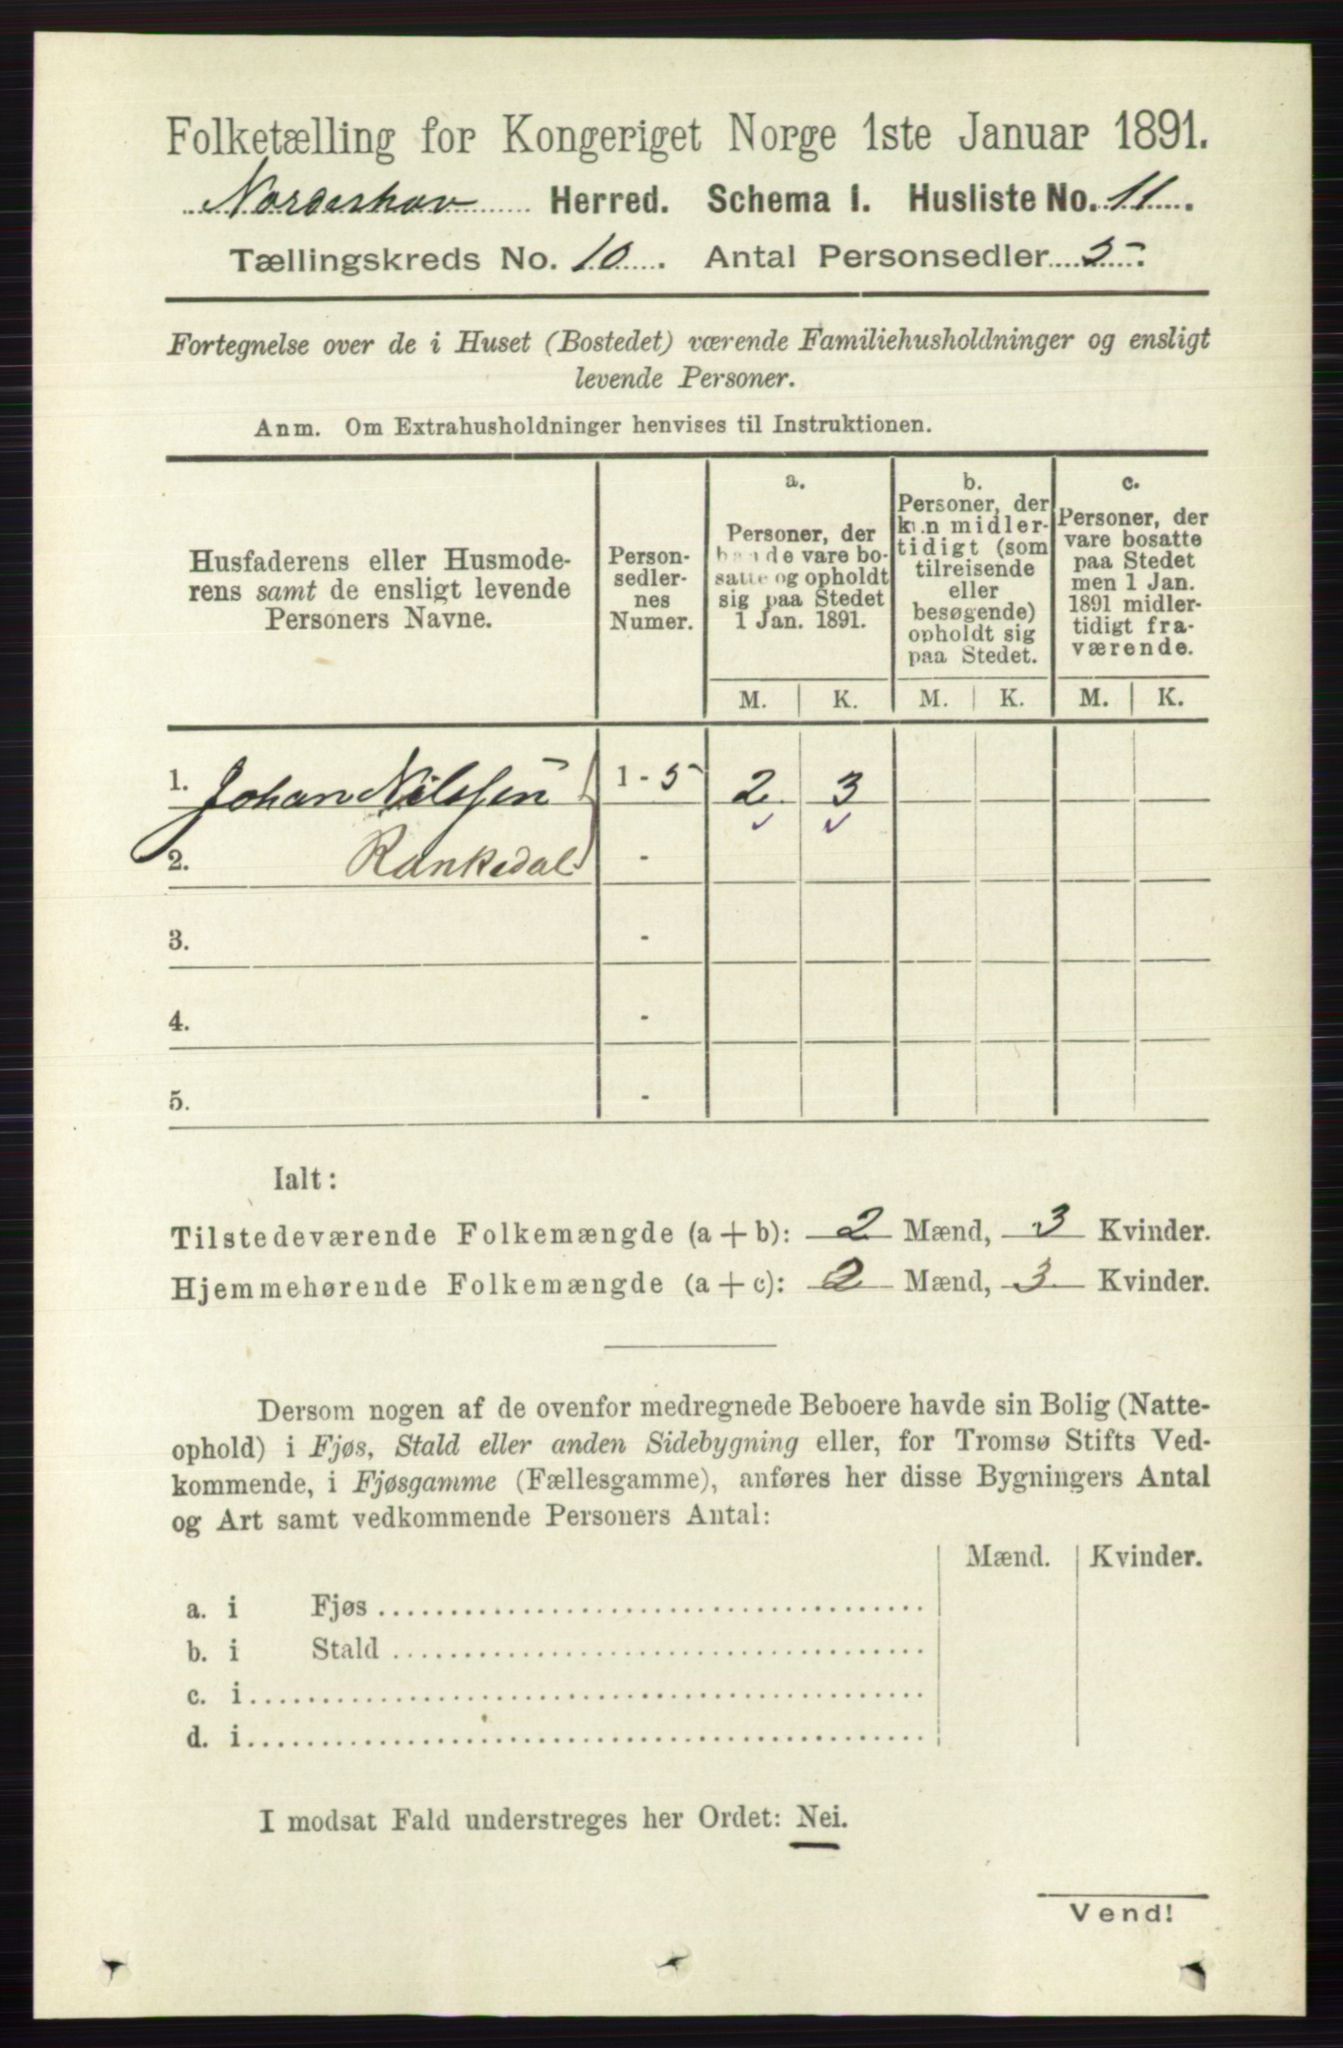 Folketælling for Kongeriget Norge 1ste Januar 1891.
Norderhov Herred. Schema I. Husliste No. 11.
Tællingskreds No. 10. Antal Personsedler 5.
Fortegnelse over de i Huset (Bostedet) værende Familiehusholdninger og ensligt
levende Personer.
Anm. Om Extrahusholdninger henvises til Instruktionen.
Husfaderens eller Husmode-
rens samt de ensligt levende
Personers Navne.
Person-
sedler-
nes
Numer.
a.
Personer, der
baade vare bo-
satte og opholdt
sig paa Stedet
1 Jan. 1891.
b.
Personer, der
kun midler-
tidigt (som
tilreisende
eller
besøgende)
opholdt sig
paa Stedet.
c.
Personer, der
vare bosatte
paa Stedet
men 1 Jan.
1891 midler-
tidigt fra-
værende.
M. K. M. K. M. K.
1. Johan Nilsen 1 - 5 2 3
2. Rankedal -
3. -
4. -
5. -
Ialt:
Tilstedeværende Folkemængde (a + b): 2 Mænd, 3 Kvinder.
Hjemmehørende Folkemængde (a + c): 2 Mænd, 3 Kvinder.
Dersom nogen af de ovenfor medregnede Beboere havde sin Bolig (Natte-
ophold) i Fjøs, Stald eller anden Sidebygning eller, for Tromsø Stifts Ved-
kommende, i Fjøsgamme (Fællesgamme), anføres her disse Bygningers Antal
og Art samt vedkommende Personers Antal:
Mænd. Kvinder.
a. i Fjøs
b. i Stald
c. i
d. i
I modsat Fald understreges her Ordet: Nei.
Vend!